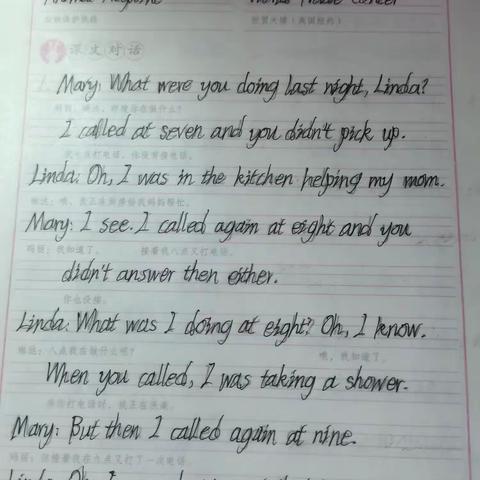 课文对话
Mary: What were you doing last night, Linda?
玛丽：琳达，昨晚你在做什么？
I called at seven and you didn't pick up.
我七点打电话，你没有接电话。
Linda: Oh, I was in the kitchen helping my mom.
琳达：哦，我正在厨房给我妈妈帮忙。
Mary: I see. I called again at eight and you
玛丽：我知道了。 接着我八点又打电话，
didn't answer then either.
你也没接。
Linda: What was I doing at eight? Oh, I know.
琳达：八点我在做什么呢？ 哦，我知道了。
When you called, I was taking a shower.
当你打电话时，我正在洗澡。
Mary: But then I called again at nine.
玛丽：但接着我在九点又打了一次电话。